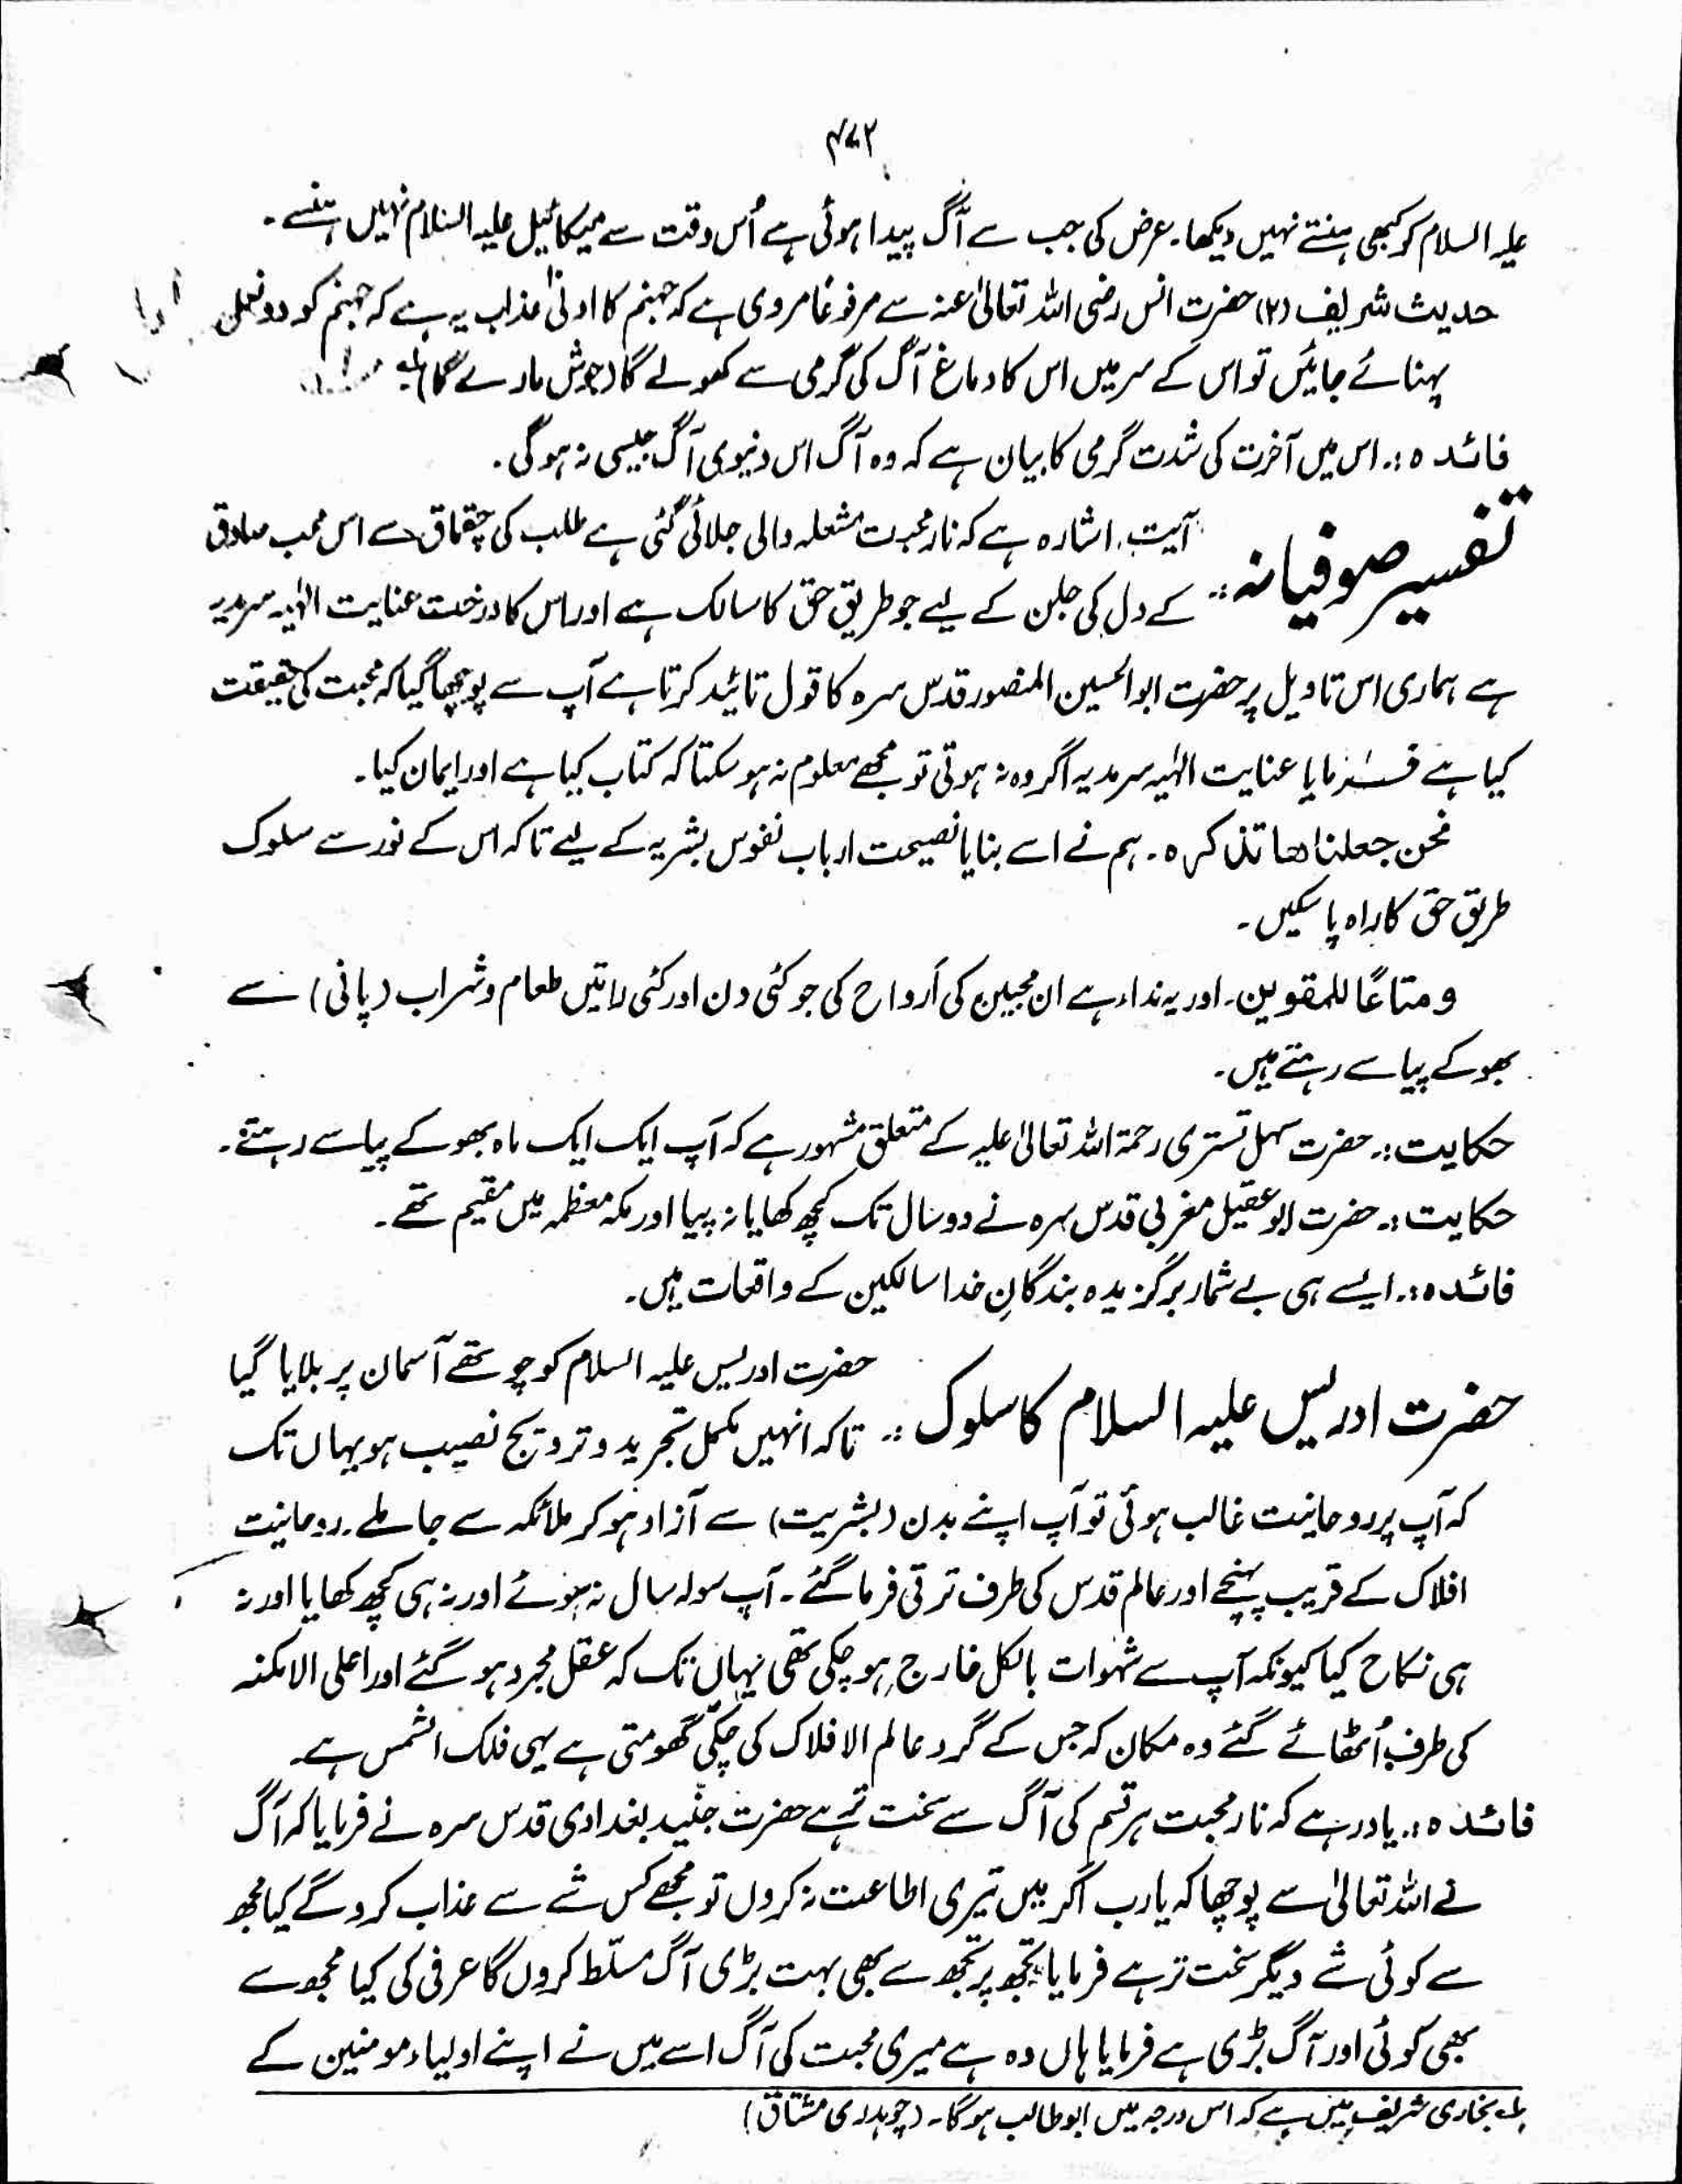 ۴۷۲
علیہ السلام کو کبھی ہنستے نہیں دیکھا۔ عرض کی جب سے آگ پیدا ہوئی ہے اُس وقت سے میکائیل علیہ السلام نہیں ہنسے۔
حدیث شریف (۲) حضرت انس رضی اللہ تعالیٰ عنہ سے مرفوعًا مروی ہے کہ جہنم کا ادنیٰ عذاب یہ ہے کہ جہنم کو دو نعلی
پہنائے جائیں تو اس کے سر میں اس کا دماغ آگ کی گرمی سے کھولے گا (جوش مارے گا) لہ
فائدہ :۔ اس میں آخرت کی شدت گرمی کا بیان ہے کہ وہ آگ اس دنیوی آگ جیسی نہ ہوگی۔
تفسیر صوفیانہ :۔ آیت، اشارہ ہے کہ نار محبت مشعلہ والی جلائی گئی ہے طلب کی چقماق سے اس محب صادق
کے دل کی جلن کے لیے جو طریق حق کا سالک ہے اور اس کا درخت عنایت الٰہیہ سرمدیہ
ہے ہماری اس تاویل پر حضرت ابوالحسین المنصور قدس سرہ کا قول تائید کرتا ہے آپ سے پوچھا گیا کہ محبت کی حقیقت
کیا ہے فرمایا عنایت الٰہیہ سرمدیہ اگر وہ نہ ہوتی تو مجھے معلوم نہ ہو سکتا کہ کتاب کیا ہے اور ایمان کیا۔
نحن جعلناھا تذکرہ۔ ہم نے اسے بنایا نصیحت ارباب نفوس بشریہ کے لیے تاکہ اس کے نور سے سلوک
طریق حق کا راہ پا سکیں۔
ومتاعًا للمقوین۔ اور یہ نداء ہے ان محبین کی اَرواح کی جو کئی دن اور کئی راتیں طعام و شراب (پانی) سے
بھوکے پیاسے رہتے ہیں۔
حکایت :۔ حضرت سہل تستری رحمۃ اللہ تعالیٰ علیہ کے متعلق مشہور ہے کہ آپ ایک ایک ماہ بھوکے پیاسے رہتے۔
حکایت :۔ حضرت ابو عقیل مغربی قدس سرہ نے دو سال تک کچھ کھایا نہ پیا اور مکہ معظمہ میں مقیم تھے۔
فائدہ :۔ ایسے ہی بے شمار برگزیدہ بندگانِ خدا سالکین کے واقعات ہیں۔
حضرت ادریس علیہ السلام کا سلوک :۔ حضرت ادریس علیہ السلام کو چوتھے آسمان پر بلایا گیا
تاکہ انہیں مکمل تجرید و ترویج نصیب ہو یہاں تک
کہ آپ پر روحانیت غالب ہوئی تو آپ اپنے بدن (بشریت) سے آزاد ہو کر ملائکہ سے جا ملے۔ روحانیت
افلاک کے قریب پہنچے اور عالم قدس کی طرف ترقی فرما گئے۔ آپ سولہ سال نہ سوئے اور نہ ہی کچھ کھایا اور نہ
ہی نکاح کیا کیونکہ آپ سے شہوات بالکل خارج ہو چکی تھی یہاں تک کہ عقل مجرد ہو گئے اور اعلی الامکنہ
کی طرف اُٹھائے گئے وہ مکان کہ جس کے گرد عالم الافلاک کی چکّی گھومتی ہے یہی فلک الشمس ہے۔
فائدہ :۔ یاد رہے کہ نار محبت ہر قسم کی آگ سے سخت تر ہے حضرت جنید بغدادی قدس سرہ نے فرمایا کہ آگ
نے اللہ تعالیٰ سے پوچھا کہ یارب اگر میں تیری اطاعت نہ کروں تو مجھے کس شے سے عذاب کرو گے کیا مجھ
سے کوئی شے دیگر سخت تر ہے فرمایا تجھ پر تجھ سے بھی بہت بڑی آگ مسلّط کروں گا عرض کی کیا مجھ سے
بھی کوئی اور آگ بڑی ہے فرمایا ہاں وہ ہے میری محبت کی آگ اسے میں نے اپنے اولیاء مومنین کے
لہ بخاری شریف میں ہے کہ اس درجہ میں ابوطالب ہوگا۔ (چوہدری مشتاق)